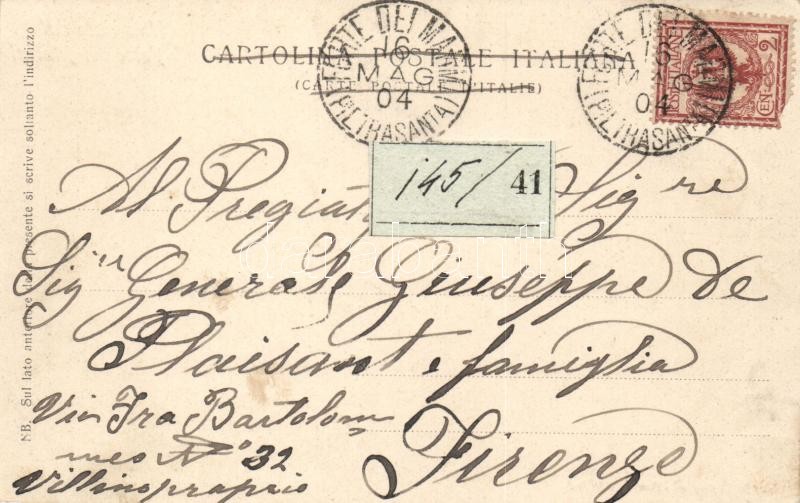 CARTOLINA POSTALE ITALIANA
(CARTE POSTALE D'ITALIE)
FORTE DEI MARMI
16
MAG
04
(PIETRASANTA)
FORTE DEI MARMI
16
MAG
04
(PIETRASANTA)
POSTE ITALIANE
CENT. 2
145/ 41
Al Pregiat Sig re
Sig re Generale Giuseppe De
Plaisant e famiglia
Via Fra Bartolom
meo N° 32
Villino proprio
Firenze
NB. Sul lato anteriore della presente si scrive soltanto l'indirizzo